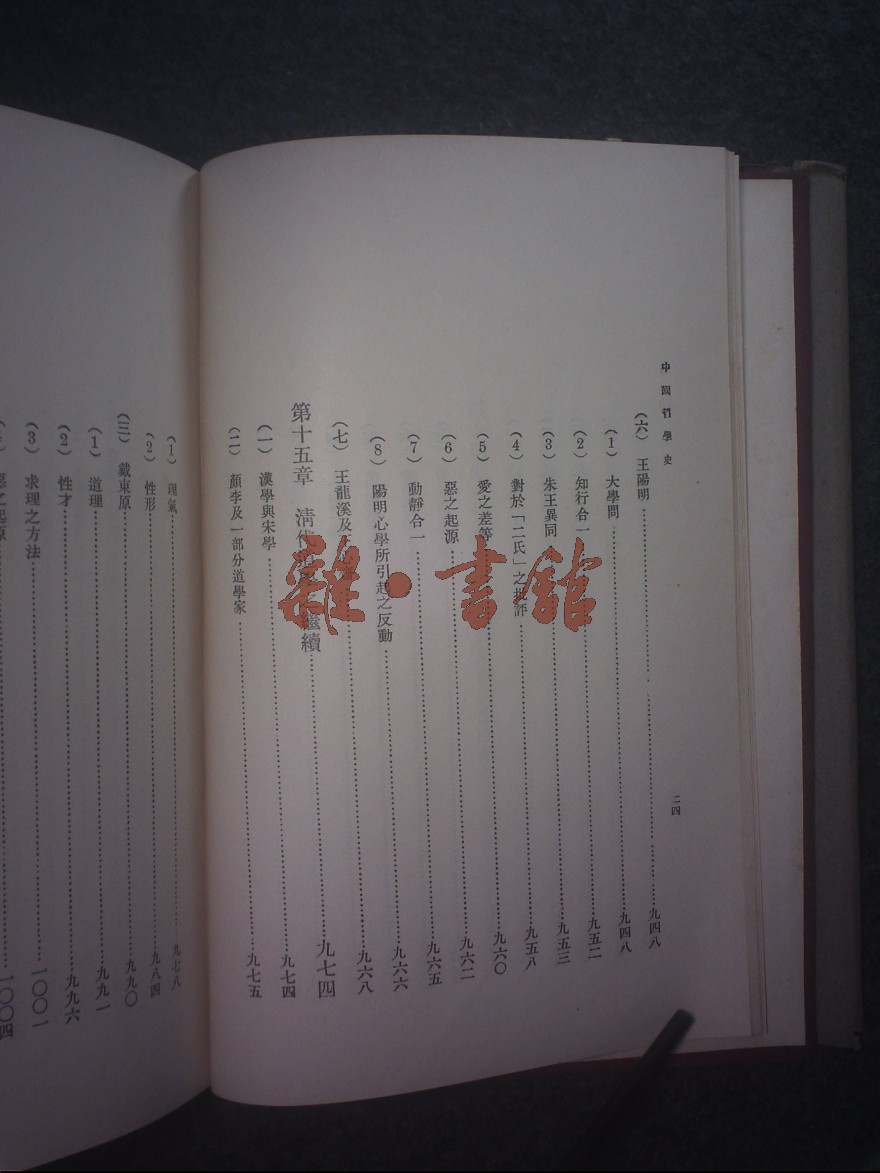 中國哲學史
二四
（六）王陽明……九四八
（1）大學問……九四八
（2）知行合一……九五二
（3）朱王異同……九五三
（4）對於「二氏」之批評……九五八
（5）愛之差等……九六〇
（6）惡之起源……九六二
（7）動靜合一……九六五
（8）陽明心學所引起之反動……九六六
（七）王龍溪及……九六八
第十五章　清代道學之繼續……九七四
（一）漢學與宋學……九七四
（二）顏李及一部分道學家……九七五
（1）理氣……九七八
（2）性形……九八四
（三）戴東原……九九〇
（1）道理……九九一
（2）性才……九九六
（3）求理之方法……一〇〇一
惡之起源……一〇〇四
雜·書館